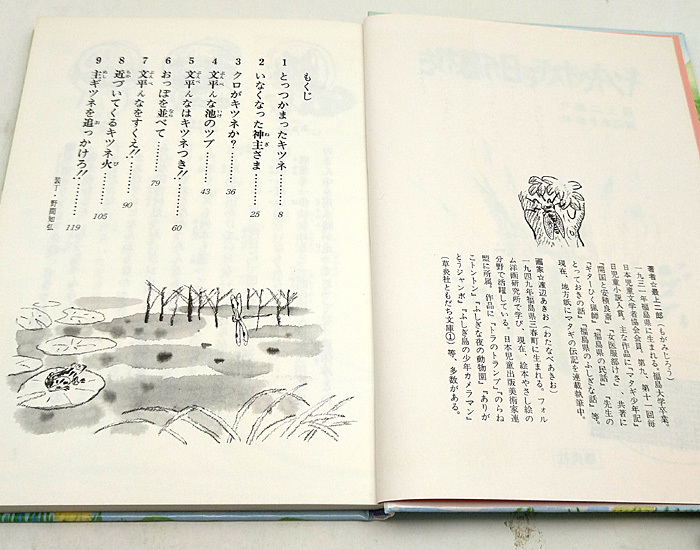 著者☆最上二郎(もがみじろう)
一九三一年福島県に生まれる。福島大学卒業。
日本児童文学者協会会員。第九、第十一回毎
日児童小説入賞。主な作品に『マタギ少年記』
『開国と安積艮斎』『女医服部けさ』、共著に
『ギターひく猟師』『福島県の民話』『先生の
とっておきの話』『福島県のふしぎな話』等。
現在、地方紙にマタギの伝記を連載執筆中。
画家☆渡辺あきお(わたなべあきお)
一九四九年福島県三春町に生まれる。フォル
ム洋画研究所で学び、現在、絵本やさし絵の
分野で活躍している。日本児童出版美術家連
盟に所属。作品に『トラのトランプ』『のらね
こトントン』『ふしぎな夜の動物園』『ありが
とうジャンボ』『ふしぎ島の少年カメラマン』
(草炎社ともだち文庫①)等、多数がある。
もくじ
1 とっつかまったキツネ……8
2 いなくなった神主さま……25
3 クロがキツネか?……36
4 文平んな池のツブ……43
5 文平んなはキツネつき!!……60
6 おっぽを並べて……79
7 文平んなをすくえ!!……90
8 近づいてくるキツネ火……105
9 主ギツネを追っかけろ!!……119
装丁・野間如弘